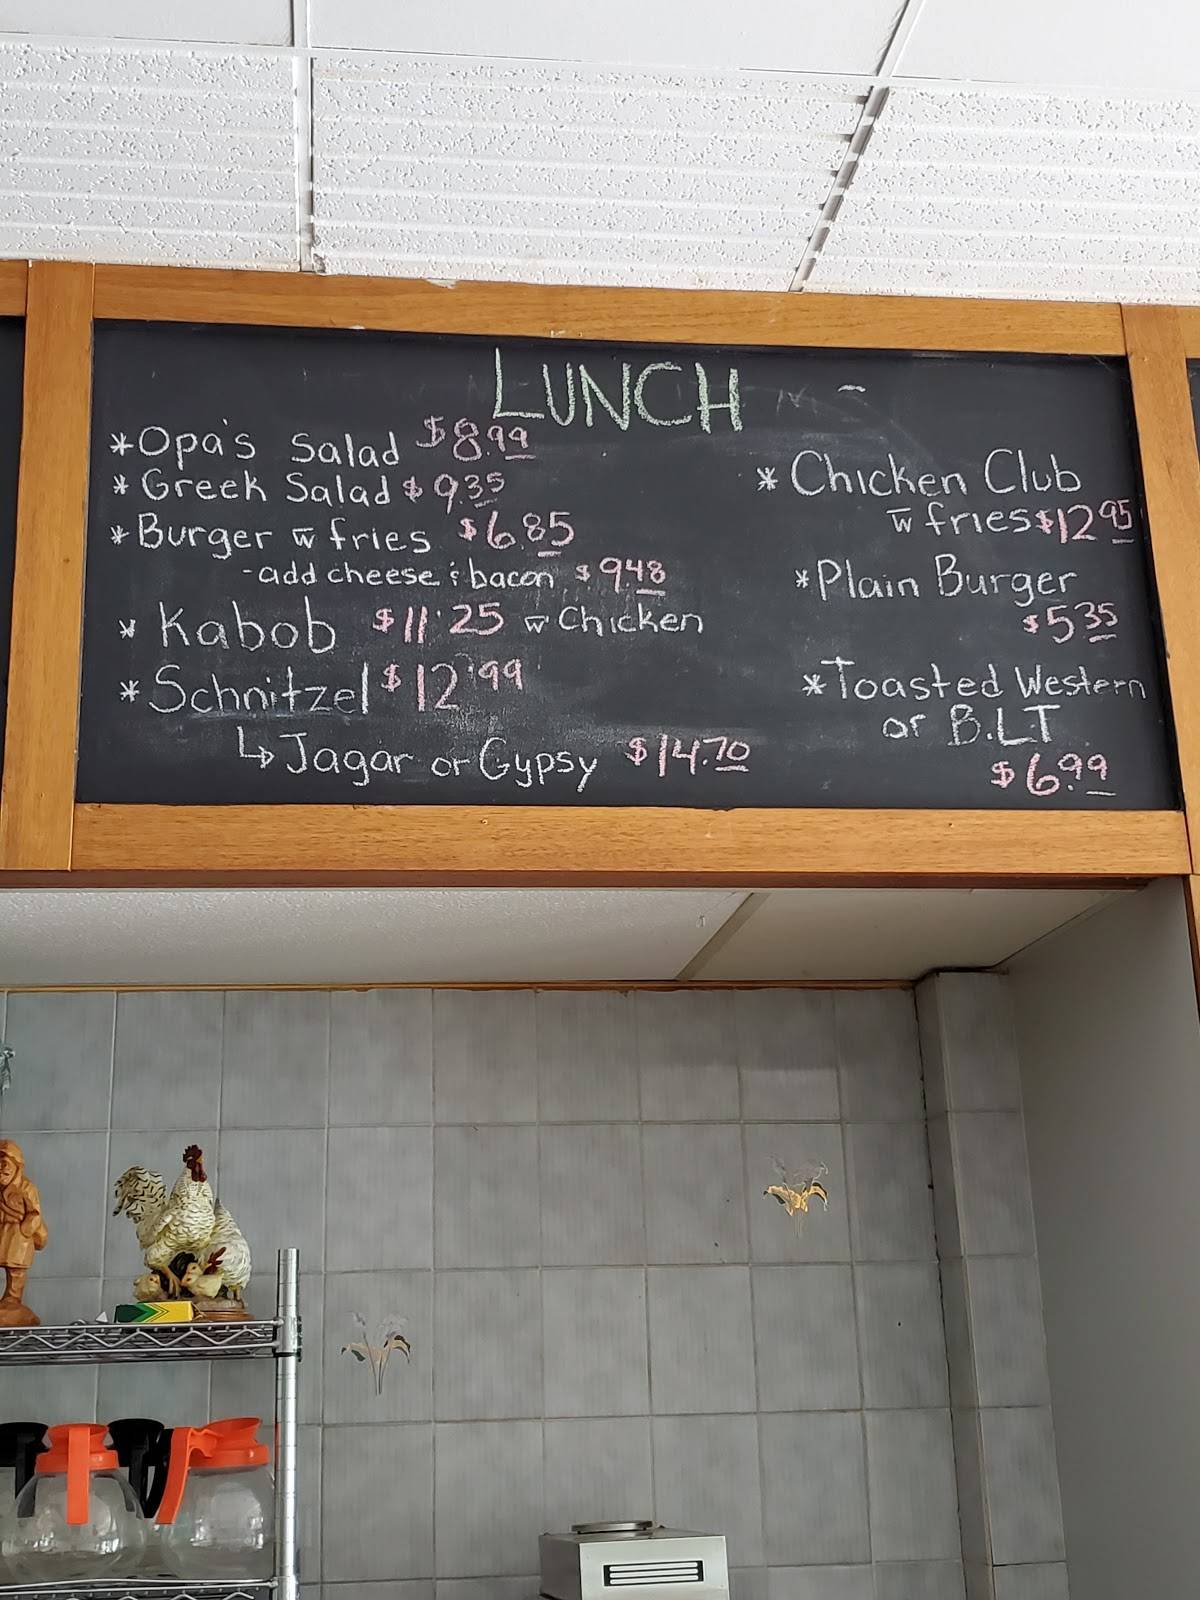 LUNCH
*Opa's Salad $8.99
*Greek Salad $9.35
*Burger w̅ fries $6.85
-add cheese & bacon $9.48
*Kabob $11.25 w̅ Chicken
*Schnitzel $12.99
↳Jagar or Gypsy $14.70
*Chicken Club
w̅ fries $12.95
*Plain Burger
$5.35
*Toasted Western
or B.L.T
$6.99